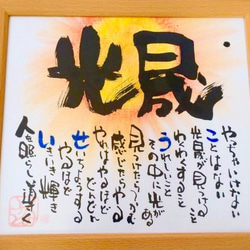 光晟
やっちゃいけない
ことはない
光晟が見つける
わくわくすること
うれしいこと
その中に光がある
見つけたら
感じたらやる
やればやるほど
どんどん
せいちょうする
やるほど
いきいき輝き
人を照らし導く